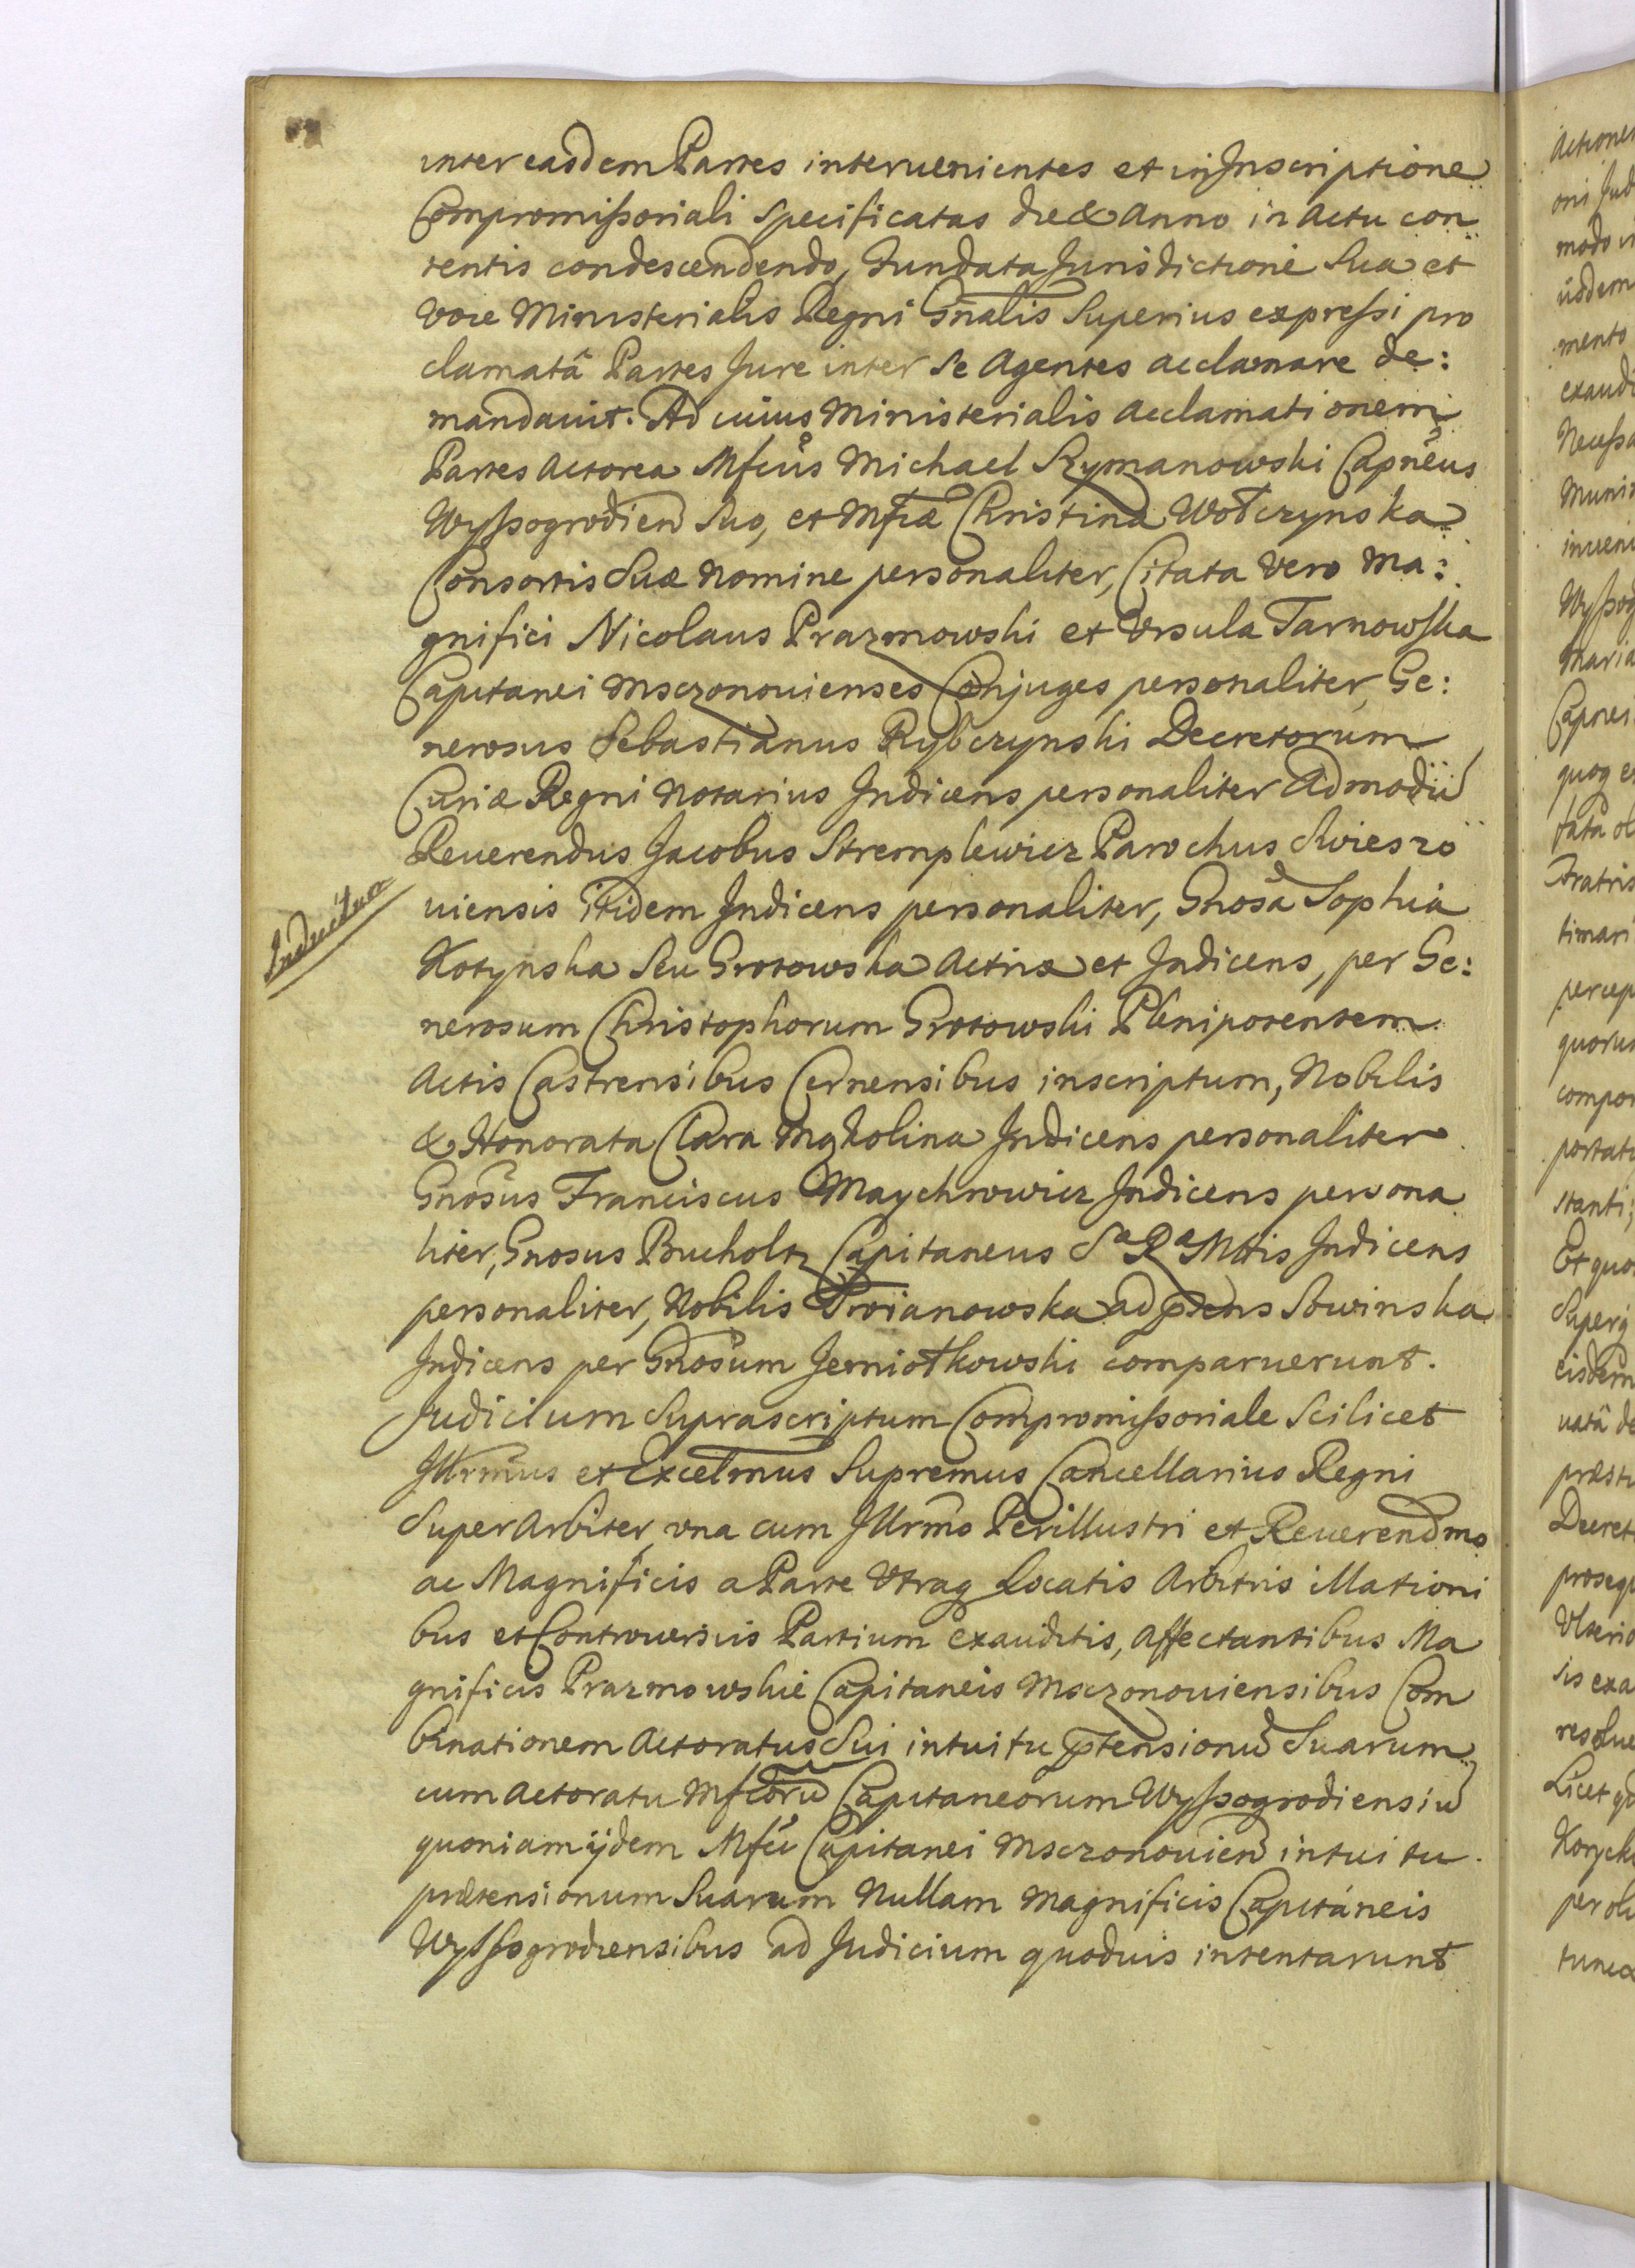 inter easdem Partes interuenientes et in Inscriptione
Compromissoriali specificatas die & Anno in Actu con
tentis condescendendo, Fundata Jurisdictione Sua et
voce Ministerialis Regni Gñalis Superius expressi pro
clamatâ Partes Jure inter se Agentes acclamare de:
mandauit. Ad cuius Ministerialis Acclamationem
Partes Actorea Mfcus Michael Rymanowski Capneus
Wyssogrodien Suo, et Mfcæ Christina Wołczynska
Consortis Suæ Nomine personaliter, Citata vero Ma:
gnifici Nicolaus Prazmowski et Vrsula Tarnowska
Capitanei Msczonouienses Conjuges personaliter, Ge:
nerosus Sebastianus Rybczynski Decretorum
Curiæ Regni Notarius Indicens personaliter Admodū
Reuerendus Jacobus Stremplewicz Parochus Swieszo
uiensis itidem Indicens personaliter, Gnosa Sophia
Kotynska Seu Grotowska Actrix et Indicens, per Ge:
nerosum Christophorum Grotowski Plenipotentem
Actis Castrensibus Cernensibus inscriptum, Nobilis
& Honorata Clara Mgkolina Indicens personaliter
Gnosus Franciscus Maychrowicz Indicens persona
liter, Gnosus Bucholtz Capitaneus Sa Ra Mttis Indicens
personaliter, Nobilis Troianowska ad pñens Sowinska
Indicens per Gnosum Jemiotkowski comparuerunt.
Judicium Suprascriptum Compromissoriale Scilicet
Illrmus et Excelmus Supremus Cancellarius Regni
SuperArbiter, vna cum Illrmo Perillustri et Reuerendmo
ac Magnificis a Parte Vtraq Locatis Arbitris illationi
bus et Controuersiis Partium exauditis, Affectantibus Ma
gnificis Prazmowskie Capitaneis Msczonouiensibus Com
binationem Actoratus Sui intuitu ptensionū Suarum
cum Actoratu Mfcorū Capitaneorum Wyssogrodiensiū
quoniam ijdem Mfci Capitanei Msczonouien intuitu
prætensionum Suarum Nullam Magnificis Capitaneis
Wyssogrodiensibus ad Judicium quoduis intentarunt